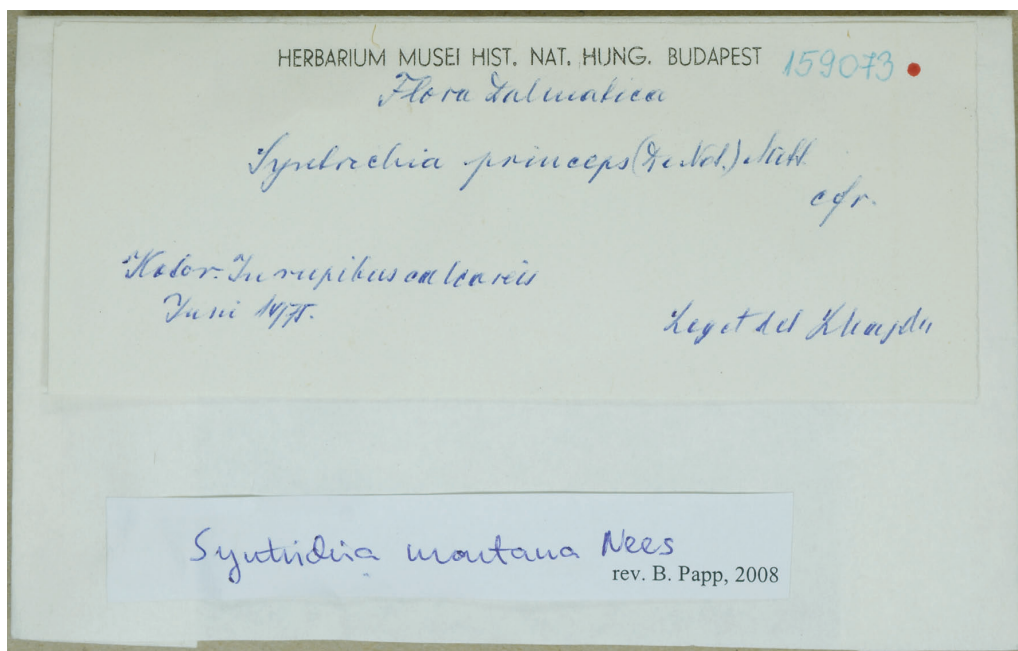 HERBARIUM MUSEI HIST. NAT. HUNG. BUDAPEST 159073
Flora Dalmatica
Syntrichia princeps (De Not.) Mitt.
cfr.
Kotor. In rupibus calcareis
Juni 1975.
Leg et det
Syntrichia montana Nees
rev. B. Papp, 2008